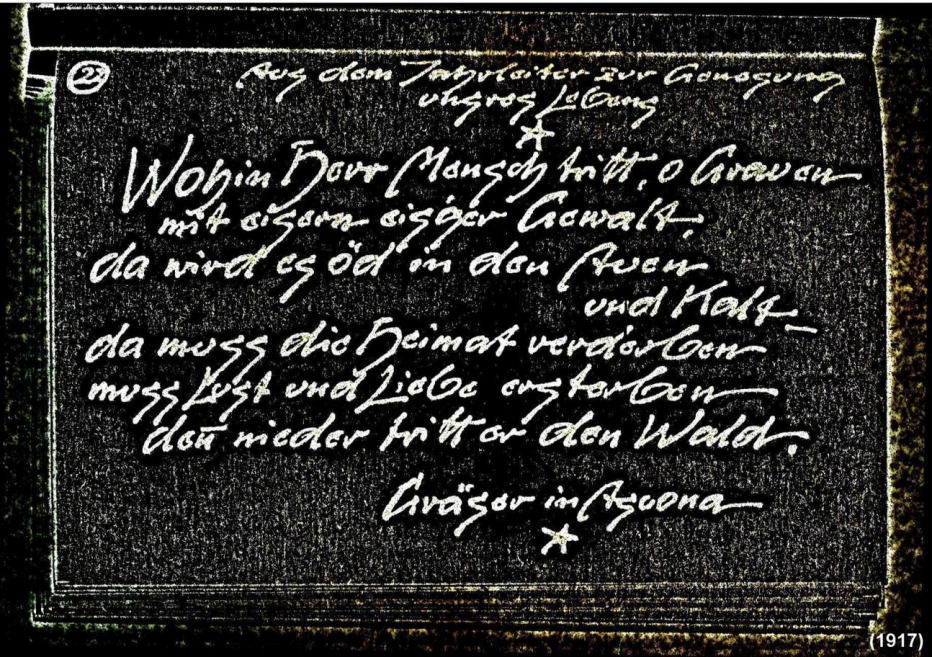 22
Aus dem Jahrleiter zur Genesung
unsres Lebens
Wohin Herr Mensch tritt, o Grauen
mit eisern eisger Gewalt,
da wird es öd in den Auen
und Kalt_
da muss die Heimat verderben
muss Lust und Liebe ersterben
den̄ nieder tritt er den Wald.
Gräser in Ascona
(1917)